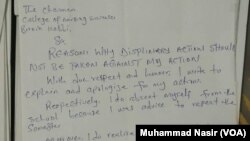 The Chairman
College of nursing sciences
Birnin Kebbi
Sir
REASONS WHY DISPLINARY ACTION SHOULD
NOT BE TAKEN AGAINST MY ACTION
With due respect and humour I write to
explain and apologize for my action
Respectively, I do absent myself from the
school because I was advise to repeat the
Semester
I do realise
Muhammad Nasir (VOA)